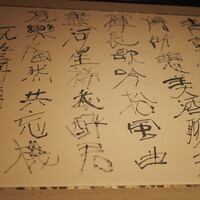 得所憩美酒聊
揮長歌吟松風曲
盡河星稀我醉君
復樂陶然共忘機